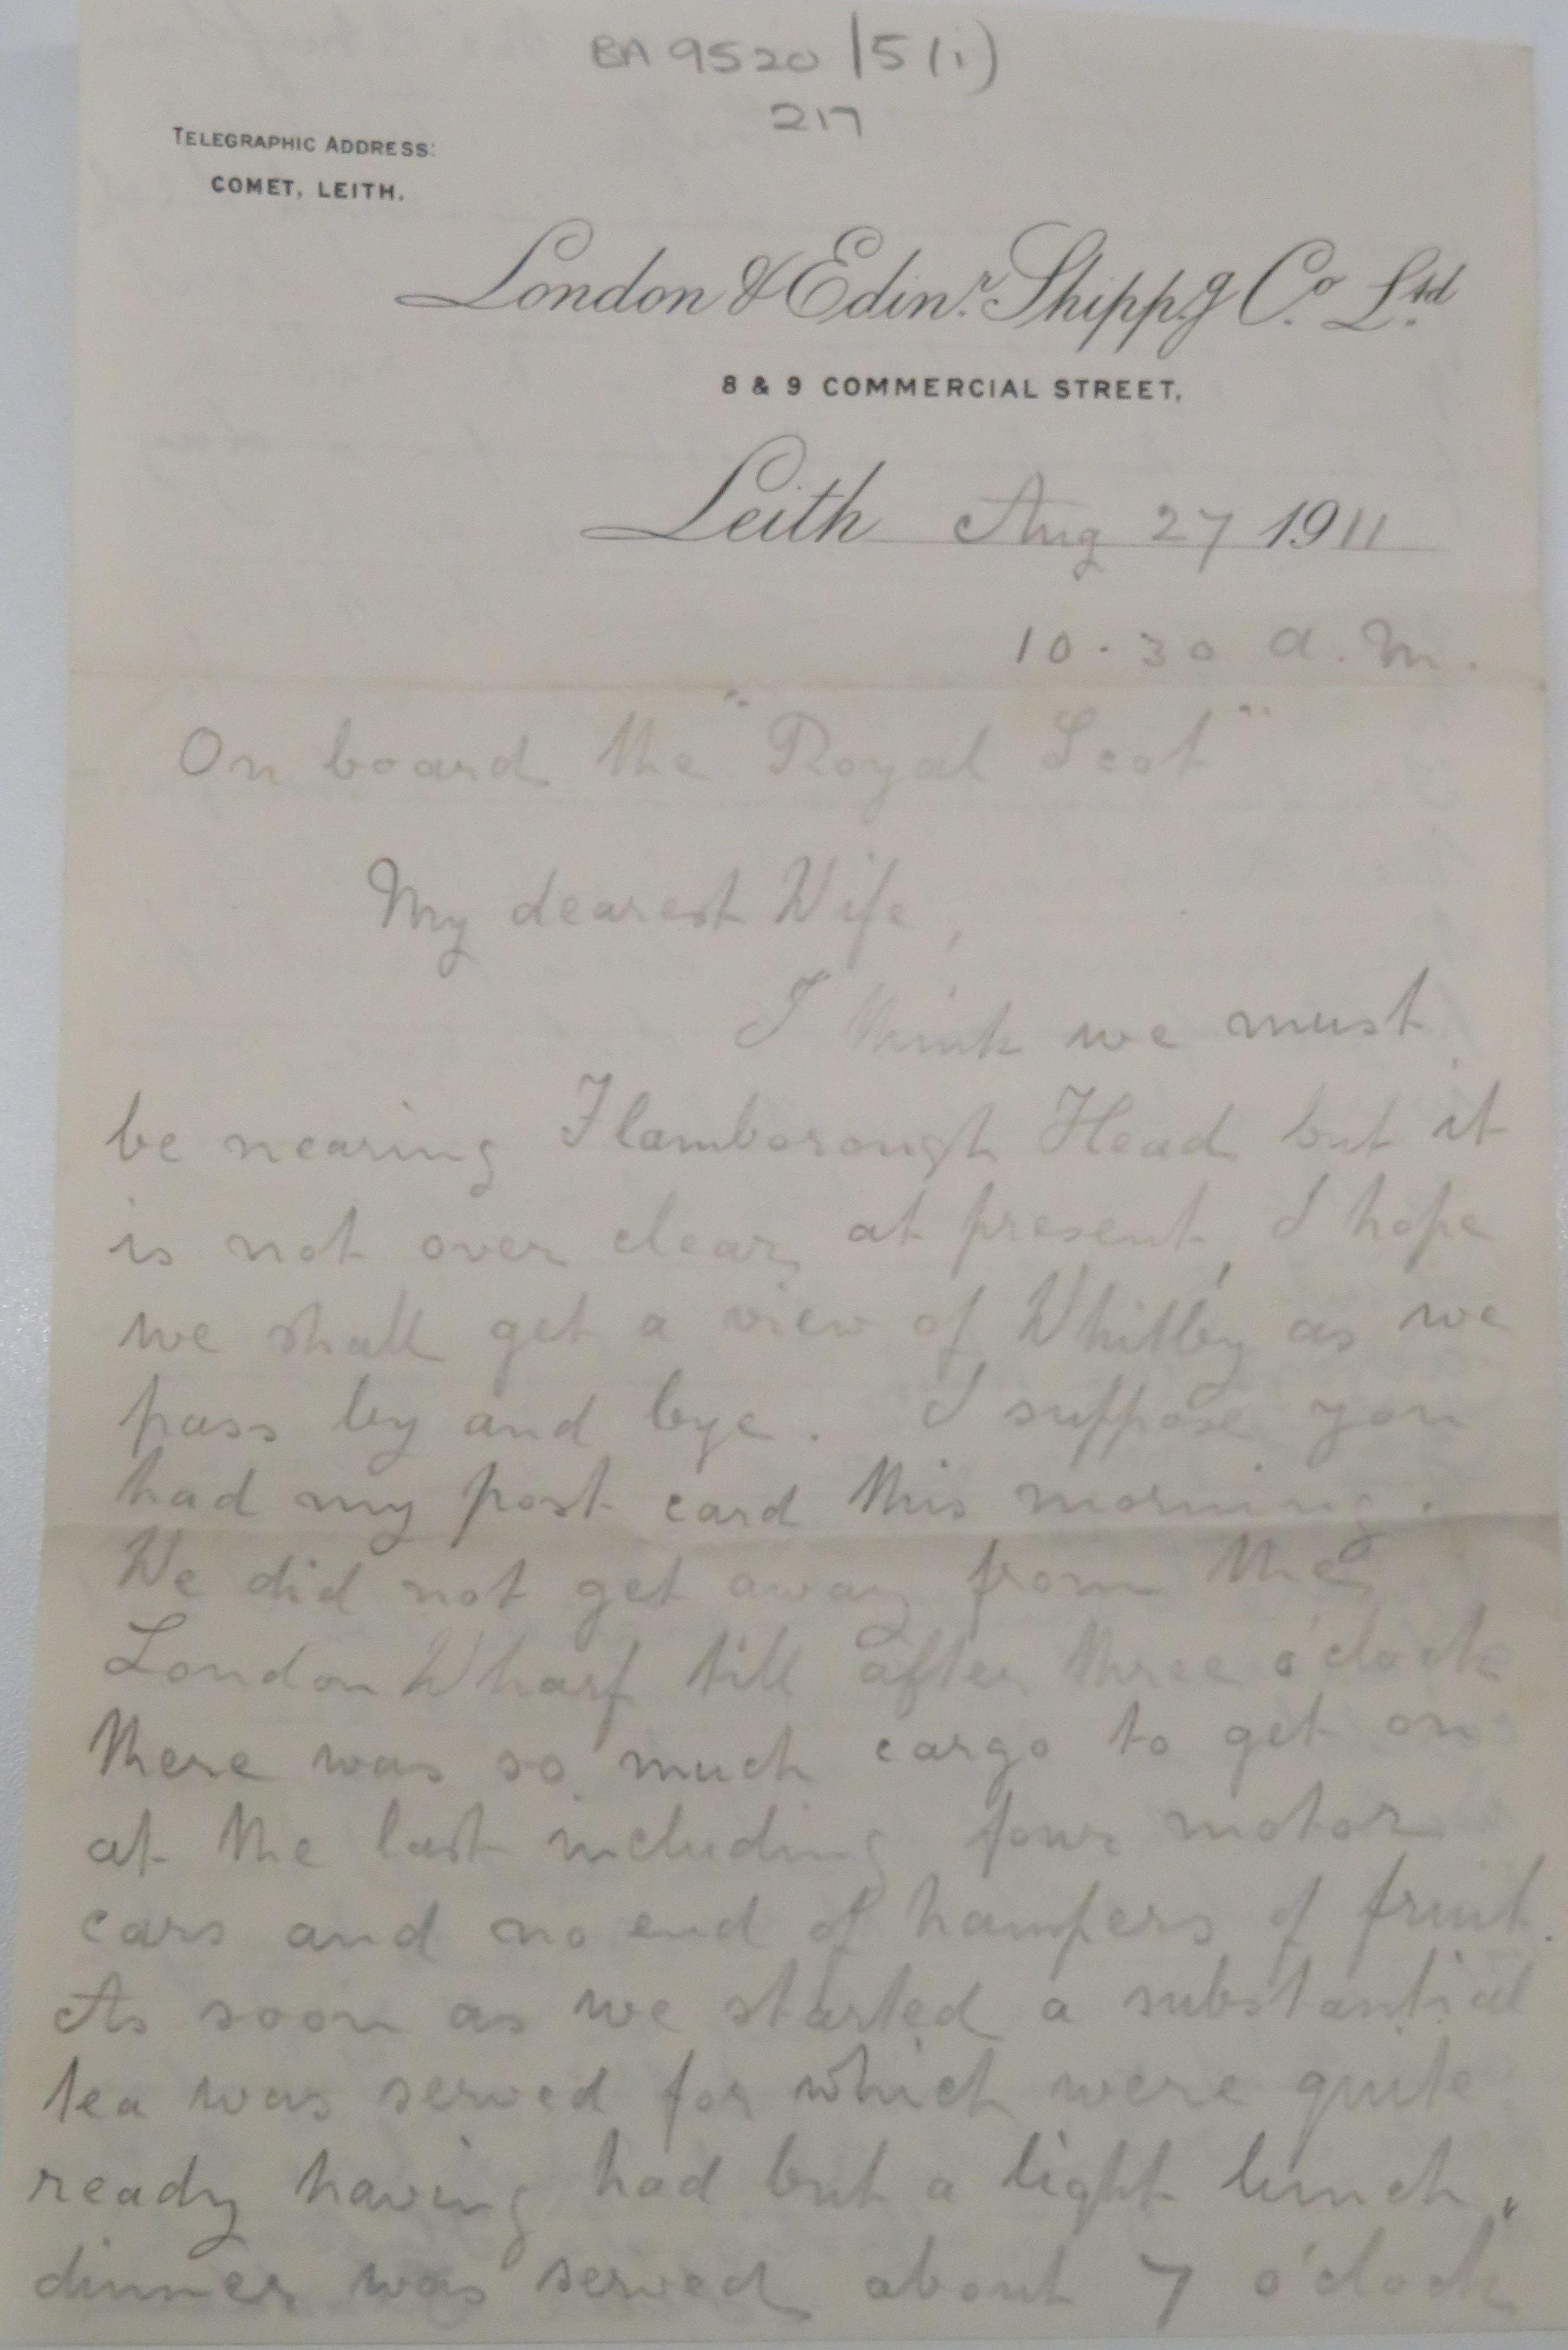 BA 9520/5(i)
217
TELEGRAPHIC ADDRESS:
COMET, LEITH.
London & Edinr. Shippg Co. Ltd.
8 & 9 COMMERCIAL STREET,
Leith Aug 27 1911
10.30 a.m.
On board the "Royal Scot"
My dearest Wife,
I think we must
be nearing Flamborough Head but it
is not over clear at present, I hope
we shall get a view of Whitby as we
pass by and bye. I suppose you
had my post card this morning.
We did not get away from the
London Wharf till after three o'clock
there was so much cargo to get on
at the last including four motor
cars and no end of hampers of fruit.
As soon as we started a substantial
tea was served for which were quite
ready having had but a light lunch,
dinner was served about 7 o'clock